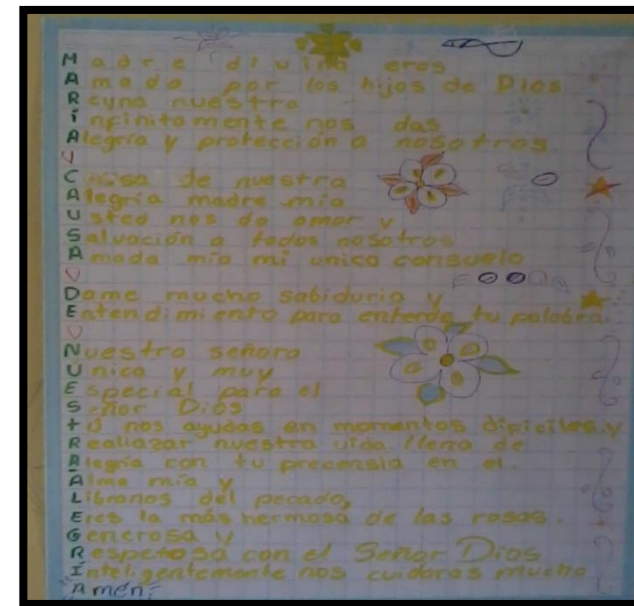 Madre divina eres
Amada por los hijos de Dios
Reyna nuestra
infinitamente nos das
Alegría y protección a nosotros
Causa de nuestra
Alegria madre mia
Usted nos da amor y
Salvación a todos nosotros
Amada mia mi unico consuelo
Dame mucho sabiduria y
Entendimiento para enterder tu palabra.
Nuestra señora
Unica y muy
Especial para el
Señor Dios
tú nos ayudas en momentos dificiles y
Realiazar nuestra vida llena de
Alegria con tu precensia en el
Alma mía y
Libranos del pecado,
Eres la más hermosa de las rosas.
Generosa y
Respetosa con el Señor Dios
Inteligentemente nos cuidaras mucho
"Amén"